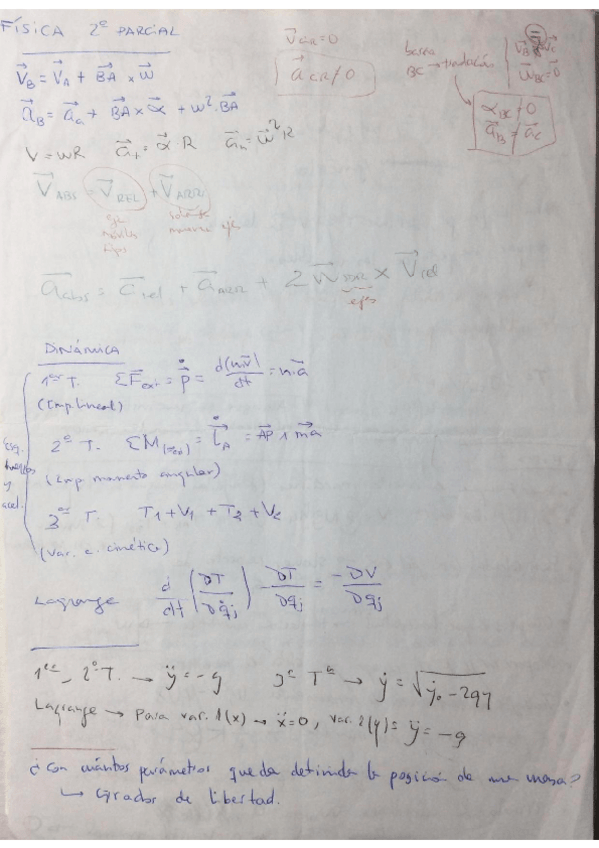 FÍSICA 2º PARCIAL
V⃗_B = V⃗_A + B⃗A × w⃗
a⃗_B = a⃗_a + B⃗A × α⃗ + w². B⃗A
V = wR a⃗_t = α⃗ R a⃗_n = w⃗² R
V⃗_CIR = 0
a⃗_CIR ≠ 0
barra
BC → traslación
V⃗_B = V⃗_C
w⃗_BC = 0
α_BC = 0
a⃗_B = a⃗_C
V⃗_ABS = V⃗_REL + V⃗_ARR
eje
móviles
fijos
eje
a⃗_abs = a⃗_rel + a⃗_arr + 2 w⃗ × V⃗_rel
ejes
DINÁMICA
1er T. ΣF⃗_ext = p⃗̇ = d(mv⃗)/dt = m·a⃗
(Imp. lineal)
2º T. ΣM = L⃗̇_A = A⃗P ∧ ma⃗
(Imp momento angular)
y
acel.
3er T. T1 + V1 + T2 + V2
(var. e. cinética)
Lagrange d/dt (∂T/∂q̇j) - ∂T/∂qj = -∂V/∂qj
1er, 2º T. → ÿ = -g 3er Tª → ẏ = √(ẏ₀ - 2gy)
Lagrange → Para var. 1(x) → ẍ = 0, var. 2(y) = ÿ = -g
¿Con cuántos parámetros queda definida la posición de una masa?
↳ Grados de libertad.